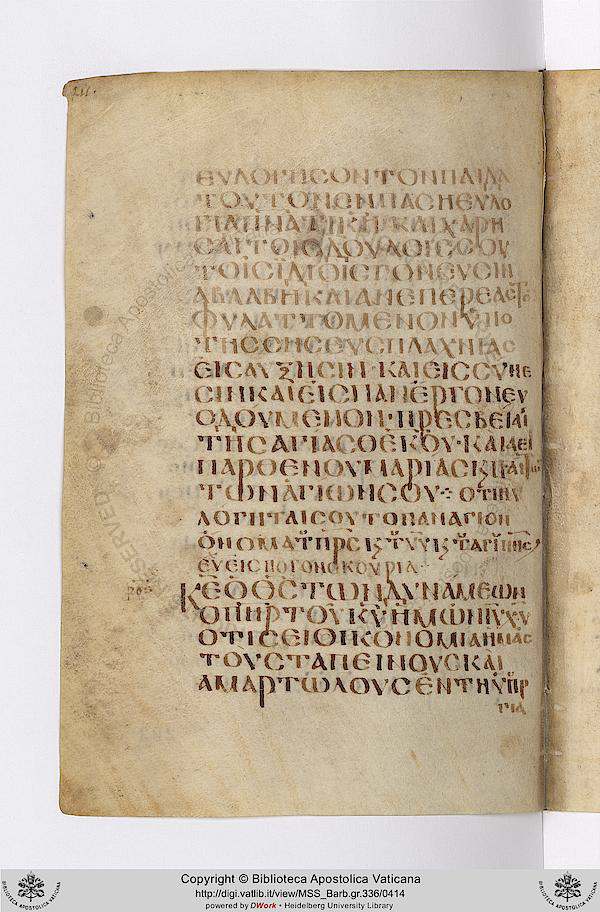 211.
ΕΥΛΟΓΗCΟΝ ΤΟΝ ΠΑΙΔΑ
ΤΟΥΤΟΝ ΕΝ ΠΑCΗ ΕΥΛΟ
ΓΙΑ ΠΝΑΤΙΚΗ ΚΑΙ ΧΑΡΗ
ΤΟΙC ΔΟΥΛΟΙC CΟΥ
ΤΟΙC ΙΔΙΟΙC ΓΟΝΕΥCΙΝ
ΑΒΛΑΒΗ ΚΑΙ ΑΝΕΠΕΡΕΑCΤΟ
ΦΥΛΑΤΤΟΜΕΝΟΝ ΥΠΟ
ΤΗC CΗC ΕΥCΠΛΑΧΝΙΑC
ΕΙC ΑΥΞΗCΙΝ· ΚΑΙ ΕΙC CΥΝΕ
CΙΝ ΚΑΙ ΕΙC ΠΑΝ ΕΡΓΟΝ ΕΥ
ΟΔΟΥΜΕΝΟΝ· ΠΡΕCΒΕΙΑΙ
ΤΗC ΑΓΙΑC ΘΕΚΟΥ· ΚΑΙ ΑΕΙ
ΠΑΡΘΕΝΟΥ ΜΑΡΙΑC Κ ΠΑΝΤΩ
ΤΩΝ ΑΓΙΩΝ CΟΥ ⁘ ΟΤΙ ΗΥ
ΛΟΓΗΤΑΙ CΟΥ ΤΟ ΠΑΝΑΓΙΟΝ
ΟΝΟΜΑ Τ ΠΡC Κ Τ ΥΥ Κ Τ ΑΓΙ ΠΝC
ΕΥ ΕΙC ΠΟΓΟΝΟΚΟΥΡΙΑ
ΚΕ Ο ΘC ΤΩΝ ΔΥΝΑΜΕΩΝ
Ο ΠΗΡ ΤΟΥ ΚΥ ΗΜΩΝ ΙΥ ΧΥ
Ο ΤΙC ΕΙΘΗ ΚΟΝΟΜΙΑ ΗΜΑC
ΤΟΥC ΤΑΠΕΙΝΟΥC ΚΑΙ
ΑΜΑΡΤΩΛΟΥC ΕΝ ΤΗ ΥΠΡ
ΓΙΑ
Copyright © Biblioteca Apostolica Vaticana
http://digi.vatlib.it/view/MSS_Barb.gr.336/0414
powered by DWork - Heidelberg University Library